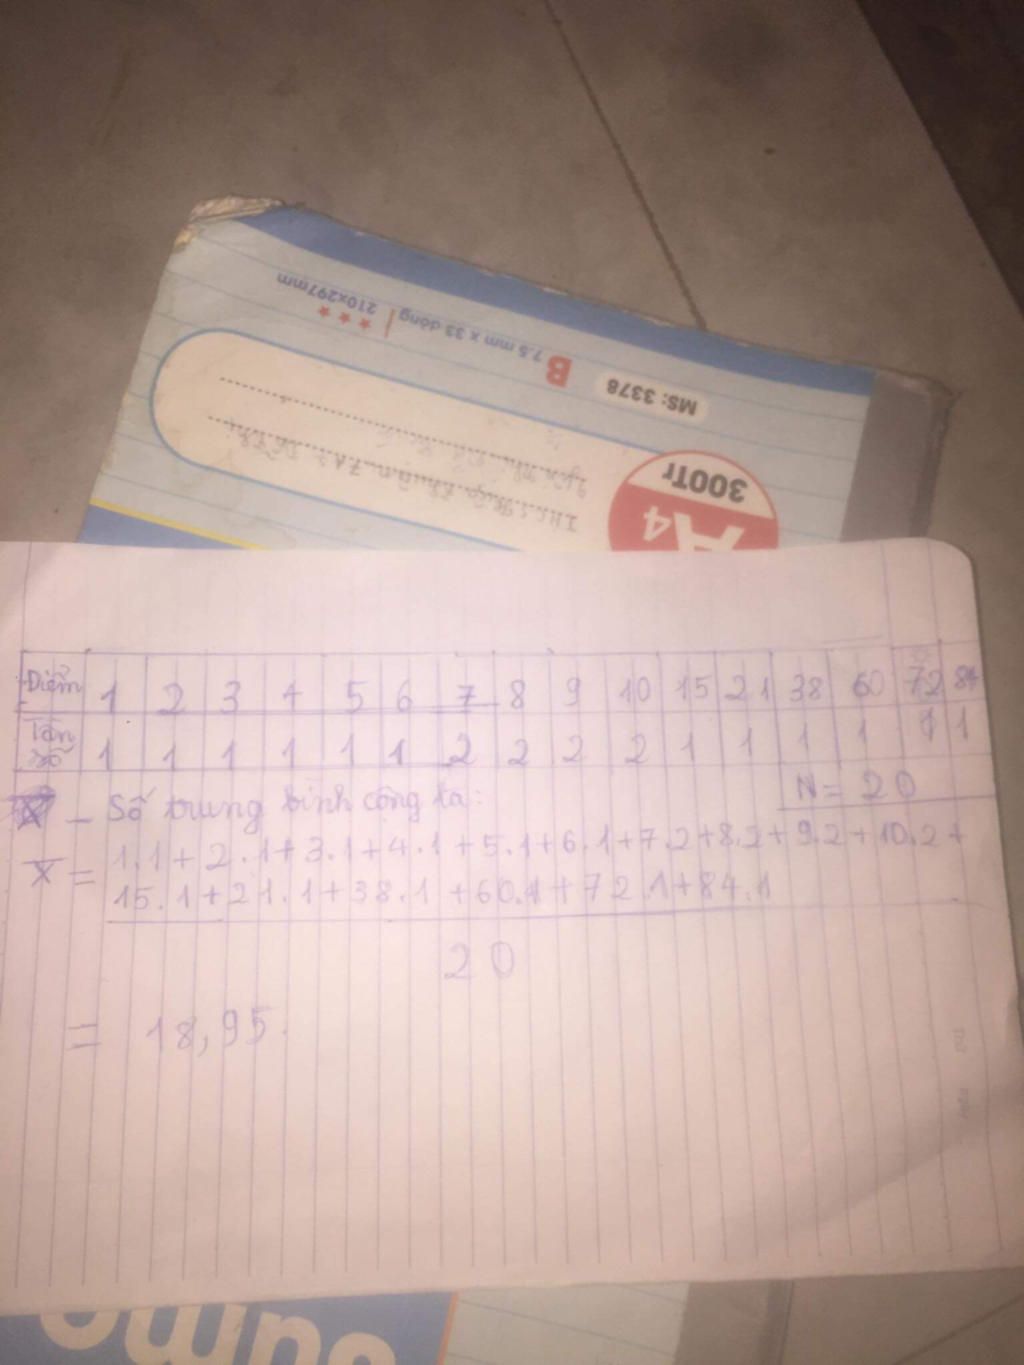 210x297mm
B 7.5 mm x 33 dòng
MS: 3378
300Tr
A4
Điểm 1 2 3 4 5 6 7 8 9 10 15 21 38 60 72 84
Tần số 1 1 1 1 1 1 2 2 2 2 1 1 1 1 1 1
N = 20
- Số trung bình cộng là:
X̅ = 1.1+2.1+3.1+4.1+5.1+6.1+7.2+8.2+9.2+10.2+
15.1+21.1+38.1+60.1+72.1+84.1
20
= 18,95.